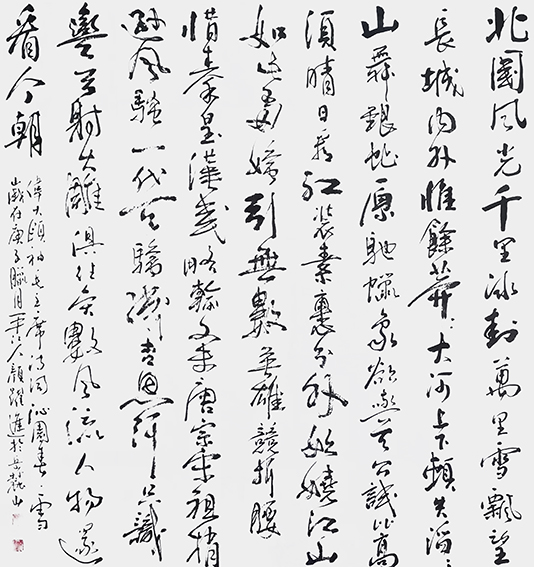 北國风光千里冰封萬里雪飄望
長城内外惟餘莽〻大河上下頓失滔〻
山舞銀蛇原馳蠟象欲與天公試比高
須晴日看红裝素裹分外妖嬈江山
如此多嬌引無數英雄競折腰
惜秦皇漢武略輸文采唐宗宋祖稍
遜风騷一代天驕成吉思汗只識
彎弓射大雕俱往矣數风流人物還
看今朝
偉大領袖毛主席诗词沁園春雪
歲在庚子臘月人顏躍進於岳麓山